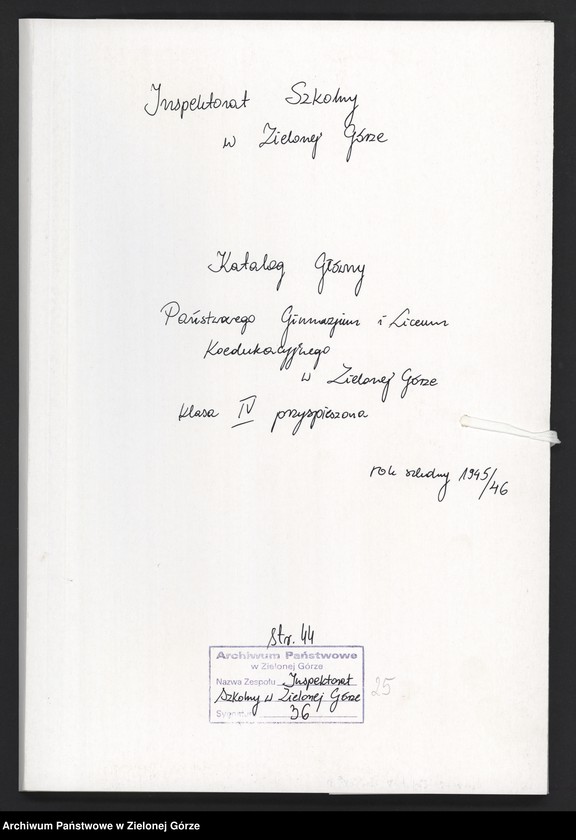 Inspektorat Szkolny
w Zielonej Górze
Katalog Główny
Państwowego Gimnazjum i Liceum
Koedukacyjnego
w Zielonej Górze
klasa IV przyspieszona
rok szkolny 1945/46
str. 44
Archiwum Państwowe
w Zielonej Górze
Nazwa Zespołu Inspektorat
Szkolny w Zielonej Górze
Sygnatura 36
25
Archiwum Państwowe w Zielonej Górze